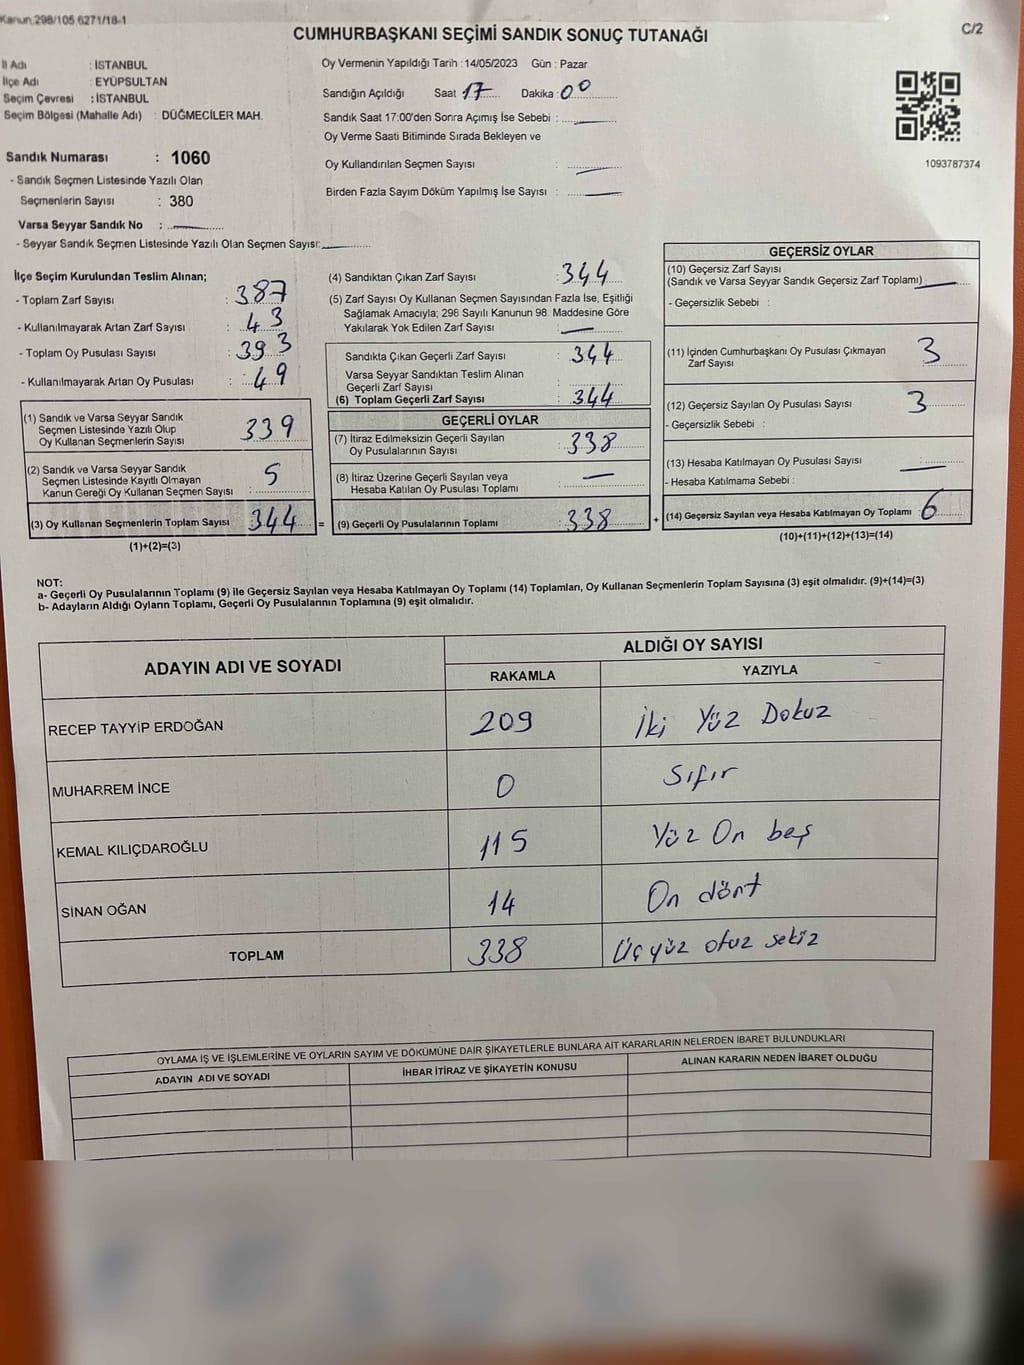 Kanun.298/105,6271/18-1
C/2
CUMHURBAŞKANI SEÇİMİ SANDIK SONUÇ TUTANAĞI
İl Adı : İSTANBUL
İlçe Adı : EYÜPSULTAN
Seçim Çevresi : İSTANBUL
Seçim Bölgesi (Mahalle Adı) : DÜĞMECİLER MAH.
Sandık Numarası : 1060
- Sandık Seçmen Listesinde Yazılı Olan
Seçmenlerin Sayısı : 380
Varsa Seyyar Sandık No :
- Seyyar Sandık Seçmen Listesinde Yazılı Olan Seçmen Sayısı:
Oy Vermenin Yapıldığı Tarih : 14/05/2023 Gün : Pazar
Sandığın Açıldığı Saat 17 Dakika : 00
Sandık Saat 17:00'den Sonra Açımış İse Sebebi :
Oy Verme Saati Bitiminde Sırada Bekleyen ve
Oy Kullandırılan Seçmen Sayısı :
Birden Fazla Sayım Döküm Yapılmış İse Sayısı :
1093787374
İlçe Seçim Kurulundan Teslim Alınan;
- Toplam Zarf Sayısı : 387
- Kullanılmayarak Artan Zarf Sayısı : 43
- Toplam Oy Pusulası Sayısı : 393
- Kullanılmayarak Artan Oy Pusulası : 49
(1) Sandık ve Varsa Seyyar Sandık
Seçmen Listesinde Yazılı Olup
Oy Kullanan Seçmenlerin Sayısı 339
(2) Sandık ve Varsa Seyyar Sandık
Seçmen Listesinde Kayıtlı Olmayan
Kanun Gereği Oy Kullanan Seçmen Sayısı : 5
(3) Oy Kullanan Seçmenlerin Toplam Sayısı 344 =
(1)+(2)=(3)
(4) Sandıktan Çıkan Zarf Sayısı : 344
(5) Zarf Sayısı Oy Kullanan Seçmen Sayısından Fazla İse, Eşitliği
Sağlamak Amacıyla; 298 Sayılı Kanunun 98. Maddesine Göre
Yakılarak Yok Edilen Zarf Sayısı :
Sandıkta Çıkan Geçerli Zarf Sayısı : 344
Varsa Seyyar Sandıktan Teslim Alınan
Geçerli Zarf Sayısı :
(6) Toplam Geçerli Zarf Sayısı : 344
GEÇERLİ OYLAR
(7) İtiraz Edilmeksizin Geçerli Sayılan
Oy Pusulalarının Sayısı : 338
(8) İtiraz Üzerine Geçerli Sayılan veya
Hesaba Katılan Oy Pusulası Toplamı :
(9) Geçerli Oy Pusulalarının Toplamı : 338 +
GEÇERSİZ OYLAR
(10) Geçersiz Zarf Sayısı
(Sandık ve Varsa Seyyar Sandık Geçersiz Zarf Toplamı) :
- Geçersizlik Sebebi :
(11) İçinden Cumhurbaşkanı Oy Pusulası Çıkmayan
Zarf Sayısı : 3
(12) Geçersiz Sayılan Oy Pusulası Sayısı : 3
- Geçersizlik Sebebi :
(13) Hesaba Katılmayan Oy Pusulası Sayısı :
- Hesaba Katılmama Sebebi :
(14) Geçersiz Sayılan veya Hesaba Katılmayan Oy Toplamı : 6
(10)+(11)+(12)+(13)=(14)
NOT:
a- Geçerli Oy Pusulalarının Toplamı (9) ile Geçersiz Sayılan veya Hesaba Katılmayan Oy Toplamı (14) Toplamları, Oy Kullanan Seçmenlerin Toplam Sayısına (3) eşit olmalıdır. (9)+(14)=(3)
b- Adayların Aldığı Oyların Toplamı, Geçerli Oy Pusulalarının Toplamına (9) eşit olmalıdır.
ADAYIN ADI VE SOYADI
ALDIĞI OY SAYISI
RAKAMLA YAZIYLA
RECEP TAYYİP ERDOĞAN 209 İki Yüz Dokuz
MUHARREM İNCE 0 Sıfır
KEMAL KILIÇDAROĞLU 115 Yüz On beş
SİNAN OĞAN 14 On dört
TOPLAM 338 Üçyüz otuz sekiz
OYLAMA İŞ VE İŞLEMLERİNE VE OYLARIN SAYIM VE DÖKÜMÜNE DAİR ŞİKAYETLERLE BUNLARA AİT KARARLARIN NELERDEN İBARET BULUNDUKLARI
ADAYIN ADI VE SOYADI İHBAR İTİRAZ VE ŞİKAYETİN KONUSU ALINAN KARARIN NEDEN İBARET OLDUĞU